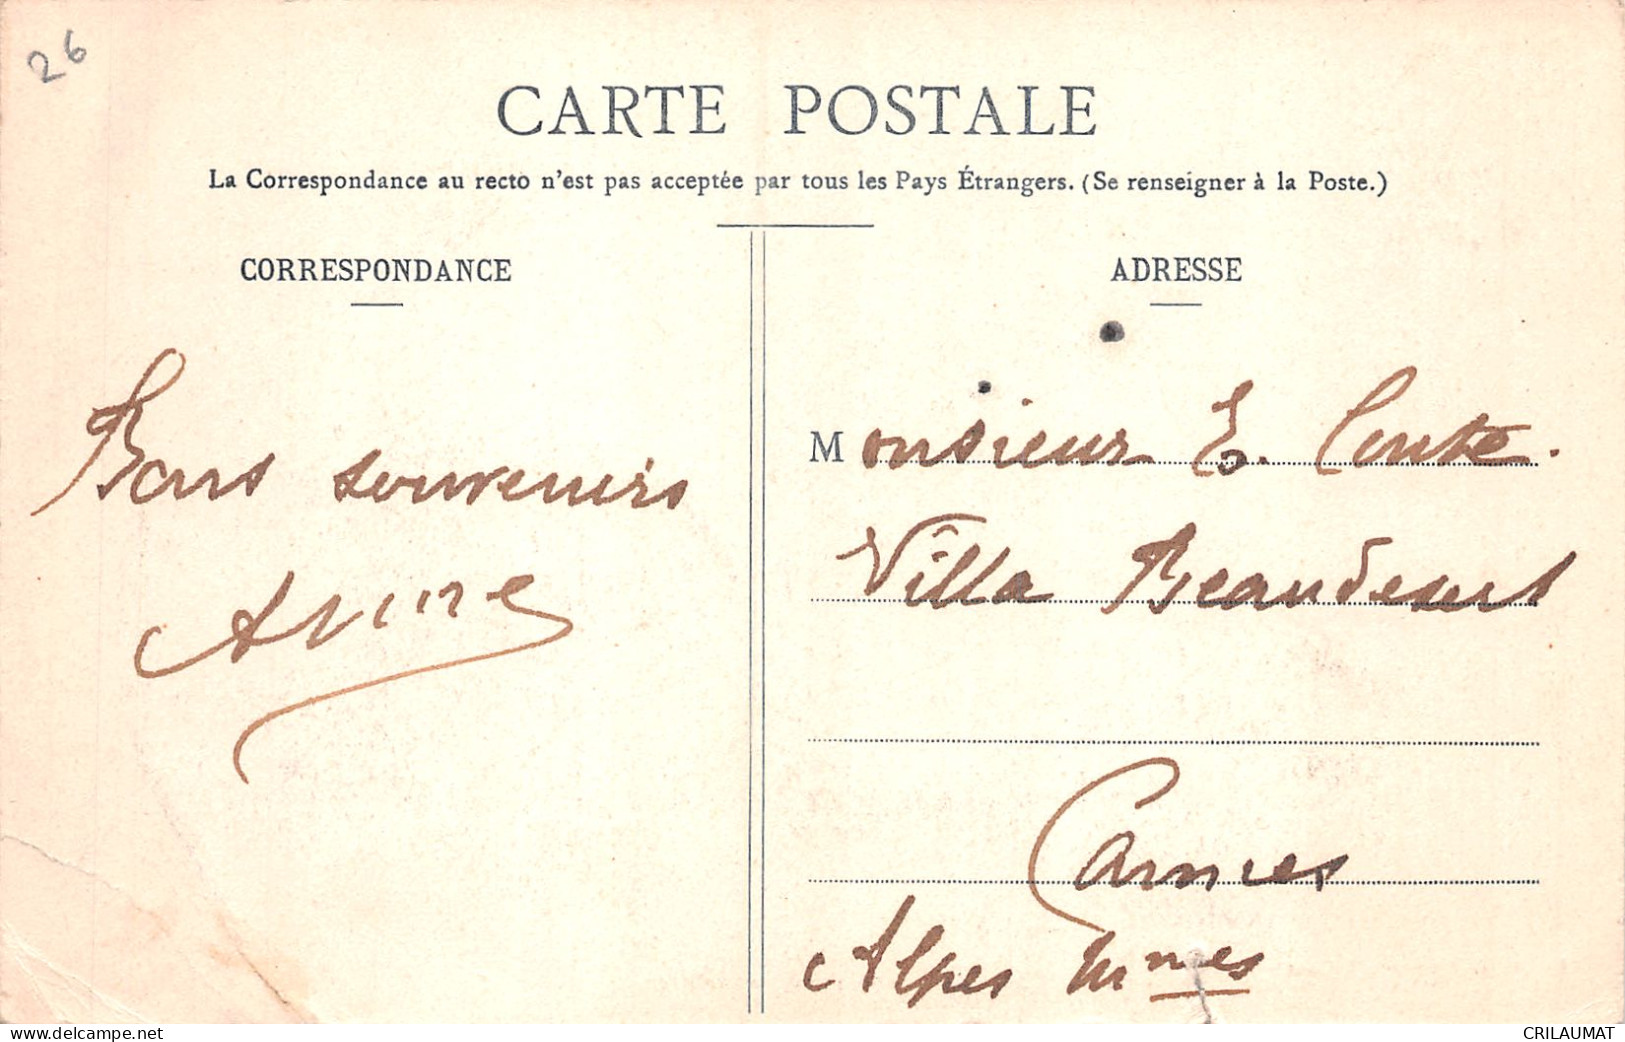 26
CARTE POSTALE
La Correspondance au recto n'est pas acceptée par tous les Pays Étrangers. (Se renseigner à la Poste.)
CORRESPONDANCE
Bons souvenirs
Anne
ADRESSE
Monsieur E. Conte.
Villa Beaudesert
Cannes
Alpes Mmes
www.delcampe.net
CRILAUMAT